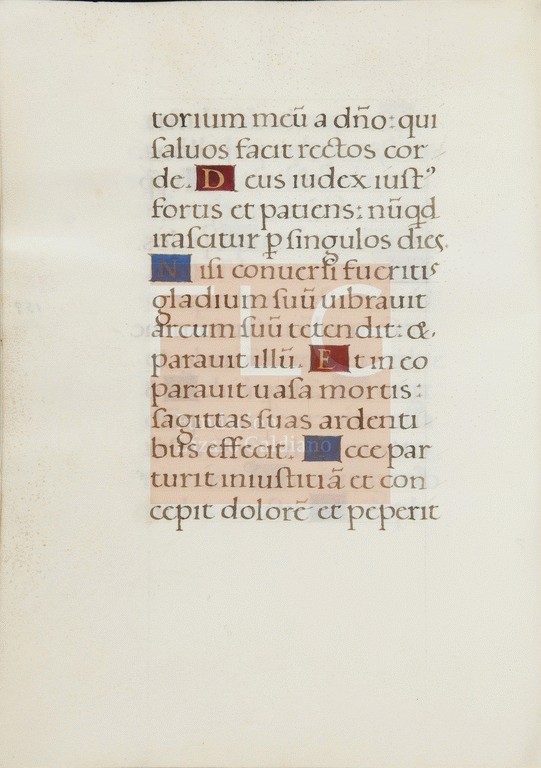 torium meū a dño: qui
ſaluos facit rectos cor
de. Deus iudex iuſtꝰ
fortis et patiens: nūqd
iraſcitur ꝑ ſingulos dies.
Niſi conuerſi fueritis
gladium ſuū uibrauit
arcum ſuū tetendit: &
parauit illū. Et in eo
parauit uaſa mortis:
ſagittas ſuas ardenti
bus effecit. Ecce par
turit iniuſtitiā et con
cepit dolorē et peperit